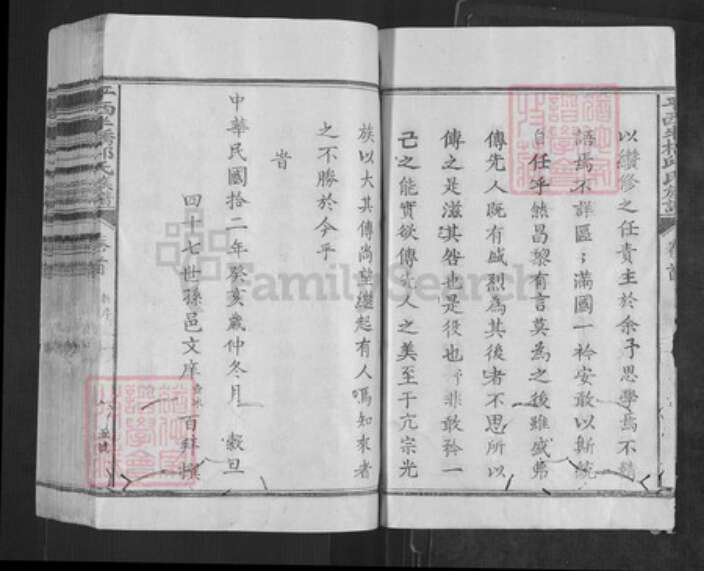 以纘修之任責主於余予思學焉不精
語焉不詳區區滿國一衿安敢以斯統
自任乎然昌黎有言莫為之後雖盛弗
傳先人既有盛烈為其後者不思所以
傳之是滋其咎也是役也予非敢矜一
己之能實欲傳先人之美至于亢宗光
族以大其傳尚望繼起有人焉知來者
之不勝於今乎
峕
中華民國拾二年癸亥歲仲冬月 穀旦
四十七世孫邑文庠
百
撰
氏族譜
卷首
FamilySearch